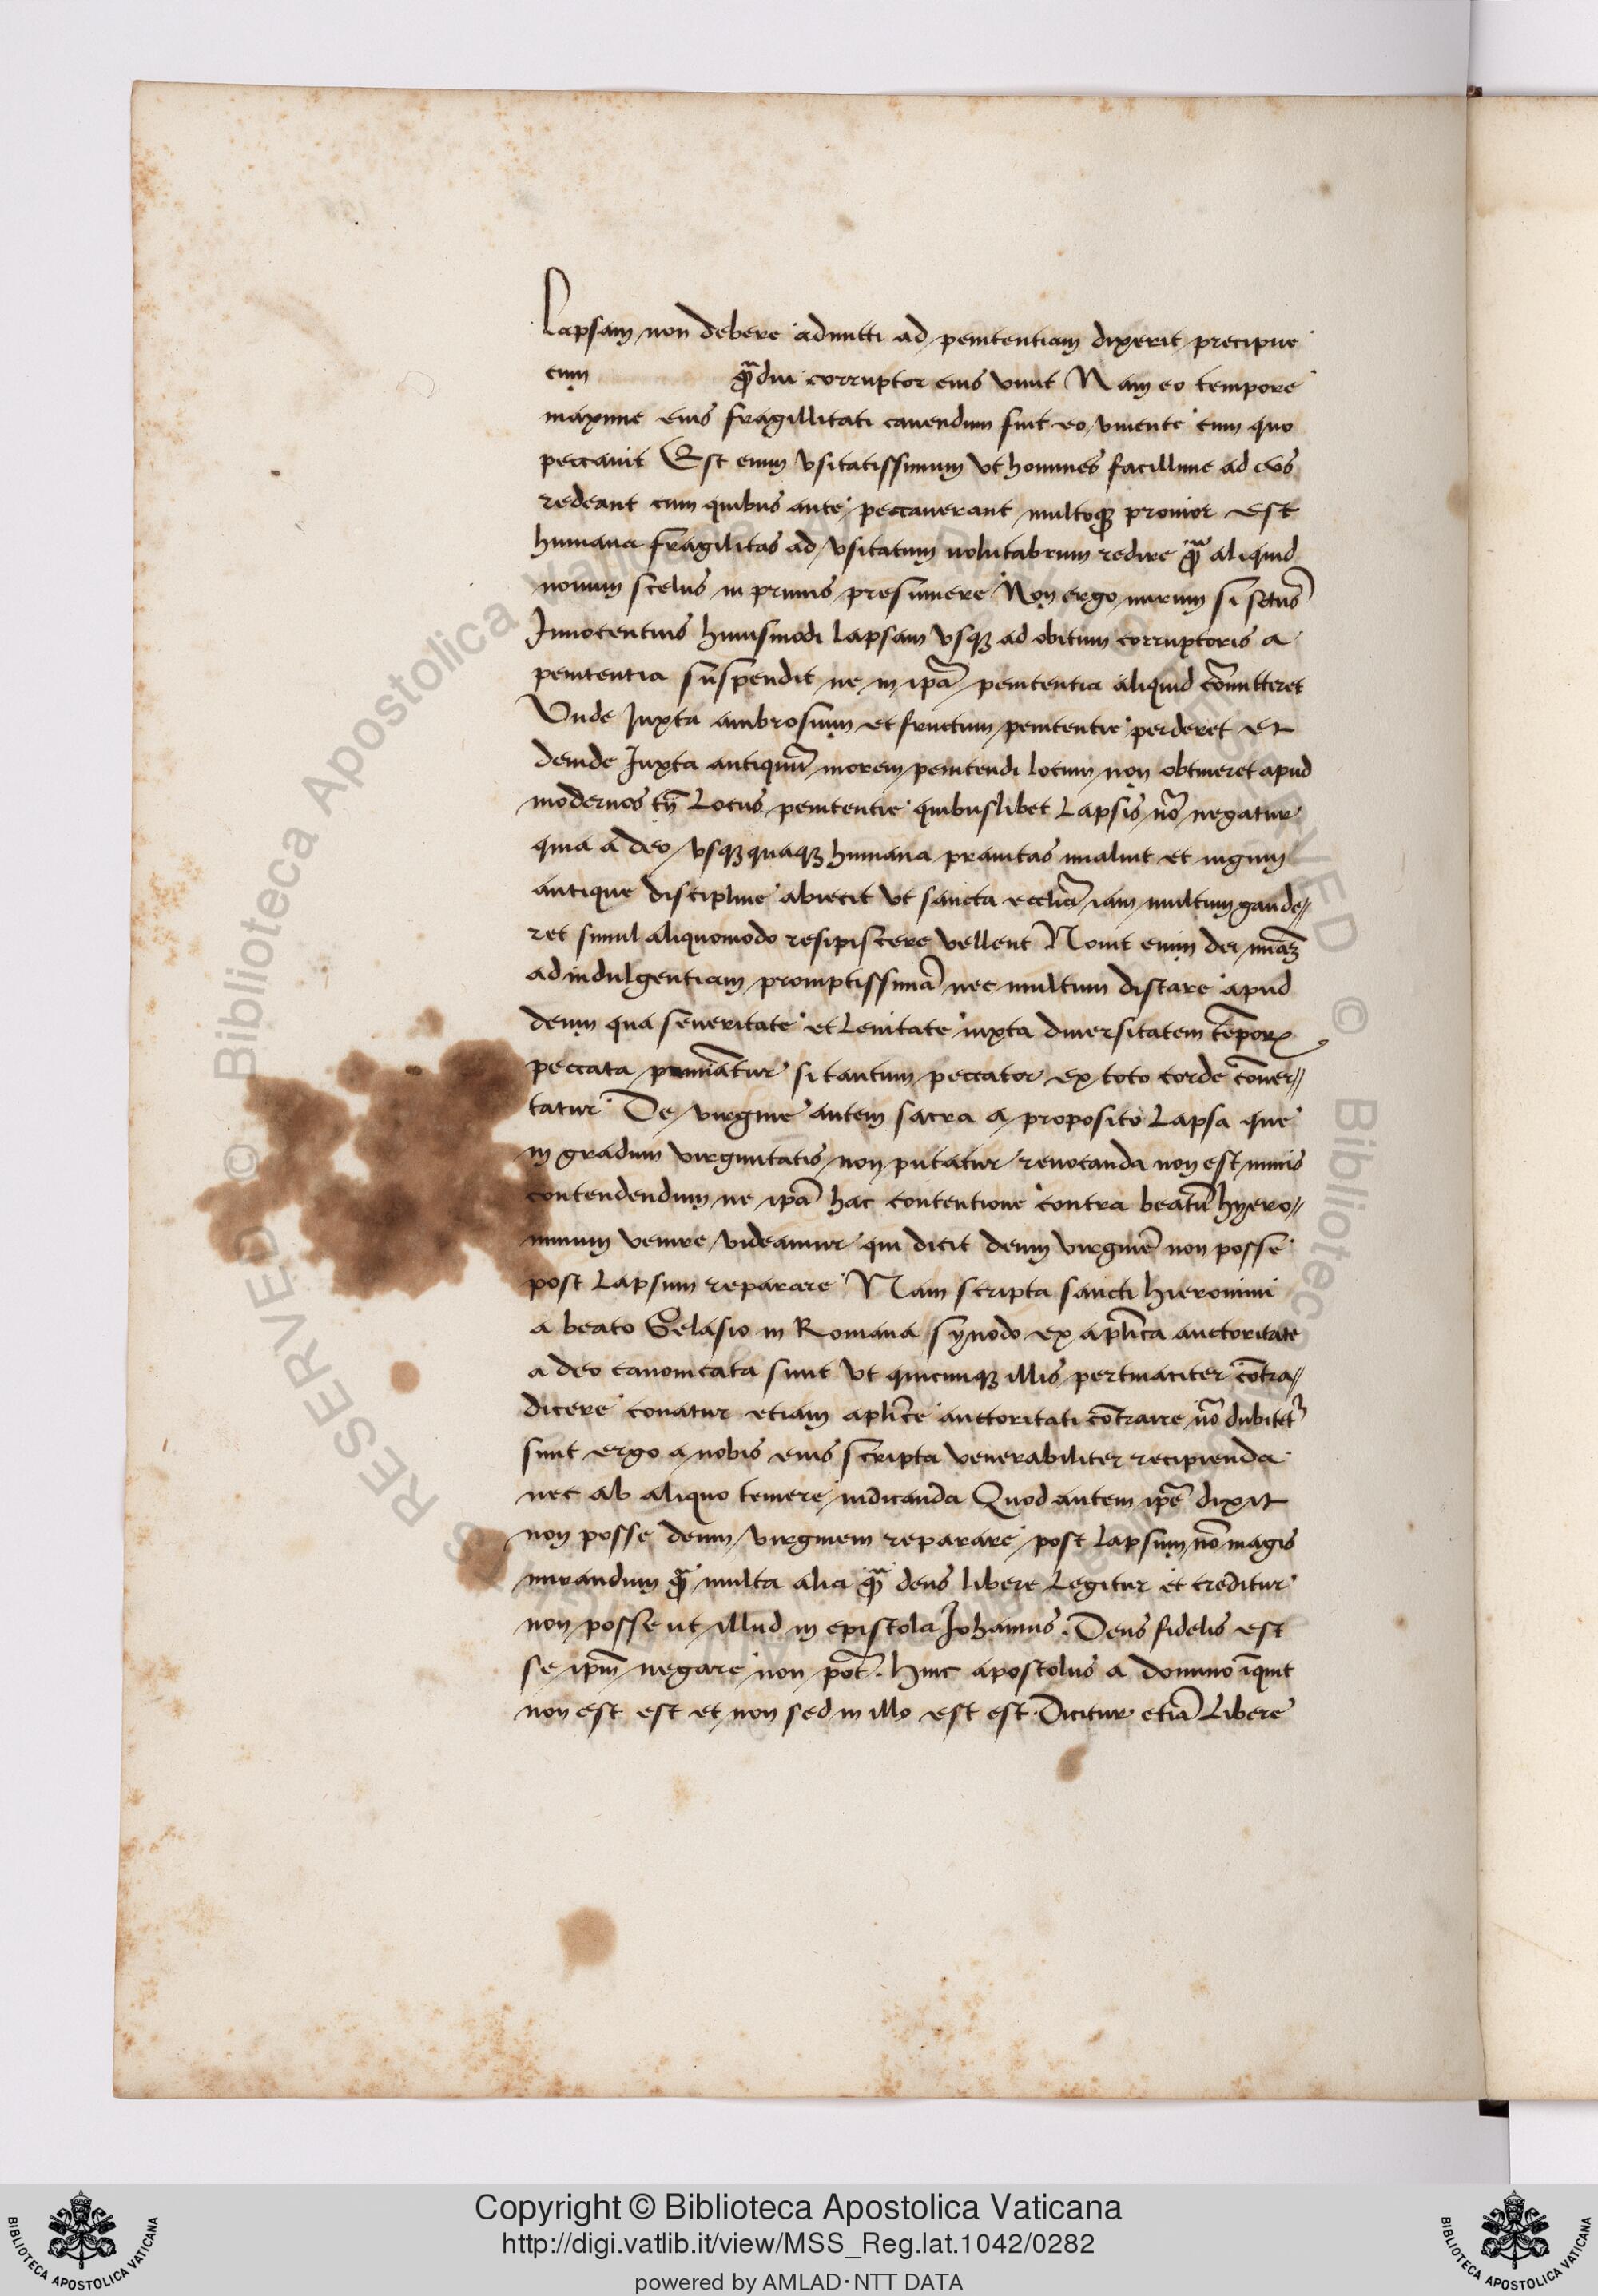 Lapsam non debere admitti ad penitentiam dixerit precipue
cum quādiu corruptor eius viuit Nam eo tempore
maxime eius fragillitati cauendum fuit eo viuente cum quo
peccauit Est enim vsitatissimum vt homines facillime ad eos
redeant cum quibus ante peccauerant multoqȝ pronior est
humana fragilitas ad vsitatum uolutabrum redire quā aliquid
nouum scelus in primis presumere Non ergo mirum si sctūs
Innocentius huiusmodi lapsam vsqȝ ad obitum corruptoris a
penitentia suspendit ne in ipā penitentia aliquid cōmitteret
Vnde Juxta ambrosium et fructum penitentie perderet et
deinde Juxta antiquū morem penitendi locum non obtineret apud
modernos tn̄ Locus penitentie quibuslibet Lapsis nō negatur
quia a deo vsqȝquaqȝ humana prauitas inualuit et iugum
antique discipline abiecit vt sancta eccliā iam multum gaude//
ret simul aliquomodo resipiscere vellent Nouit enim dei mīaȝ
ad indulgentiam promptissimā nec multum distare apud
deum qua seueritate et Lenitate iuxta diuersitatem tēporꝝ
peccata puniātur si tantum peccator ex toto corde cōuer//
tatur De virgine autem sacra a proposito Lapsa que
in gradum virginitatis non putatur reuocanda non est nimis
contendendum ne ipā hac contentione contra beatū hyero//
nimum venire videamur qui dicit deum virginē non posse
post Lapsum reparare Nam scripta sancti hieronimi
a beato Gelasio in Romana synodo ex aplīca auctoritate
a deo canonicata sunt vt quicunqȝ illis pertinaciter cōtra//
dicere conatur etiam aplīce auctoritati cōtraire nō dubitet᷑
sunt ergo a nobis eius scripta venerabiliter recipienda
nec ab aliquo temere iudicanda Quod autem ipē dixit
non posse deum virginem reparare post lapsum nō magis
mirandum quā multa alia quā deus libere Legitur et creditur
non posse ut illud in epistola Johannis. Deus fidelis est
se ipm̄ negare non pōt. hinc apostolus a domino īquit
non est est et non sed in illo est est. Dicitur etiā Libere
© Biblioteca Apostolica Vaticana
Copyright © Biblioteca Apostolica Vaticana
http://digi.vatlib.it/view/MSS_Reg.lat.1042/0282
powered by AMLAD·NTT DATA
BIBLIOTECA APOSTOLICA VATICANA
BIBLIOTECA APOSTOLICA VATICANA